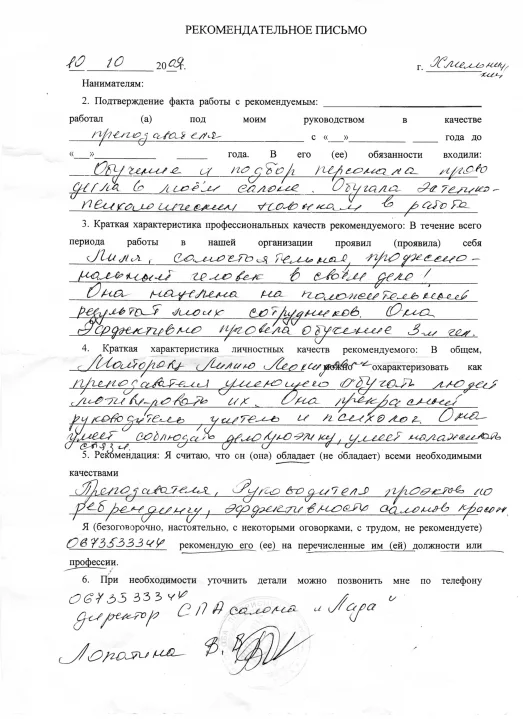 РЕКОМЕНДАТЕЛЬНОЕ ПИСЬМО
10 10 2009 г. Хмельниц
кий
Нанимателям:
2. Подтверждение факта работы с рекомендуемым:
работал (а) под моим руководством в качестве
преподавателя с «__» ___ ___ года до
«__» ___ ___ года. В его (ее) обязанности входили:
Обучение и подбор персонала прово
дила в моём салоне. Обучала эстетико-
психологическим навыкам в работе
3. Краткая характеристика профессиональных качеств рекомендуемого: В течение всего
периода работы в нашей организации проявил (проявила) себя
Лиля, самостоятельная, профессио-
нальный человек в своём деле!
Она нацелена на положительный
результат моих сотрудников. Она
Эффективно провела обучение 3м чел.
4. Краткая характеристика личностных качеств рекомендуемого: В общем,
Лилию можно охарактеризовать как
преподавателя умеющего обучать людей
мотивировать их. Она прекрасный
руководитель учитель и психолог. Она
умеет соблюдать деловую этику, умеет налаживать
связи.
5. Рекомендация: Я считаю, что он (она) обладает (не обладает) всеми необходимыми
качествами
Преподавателя, Руководителя проэктов по
ребрендингу, эффективность салонов красот.
Я (безоговорочно, настоятельно, с некоторыми оговорками, с трудом, не рекомендуете)
0673533344 рекомендую его (ее) на перечисленные им (ей) должности или
профессии.
6. При необходимости уточнить детали можно позвонить мне по телефону
0673533344
директор СПА салона "Лада"
Лопатина В. В.